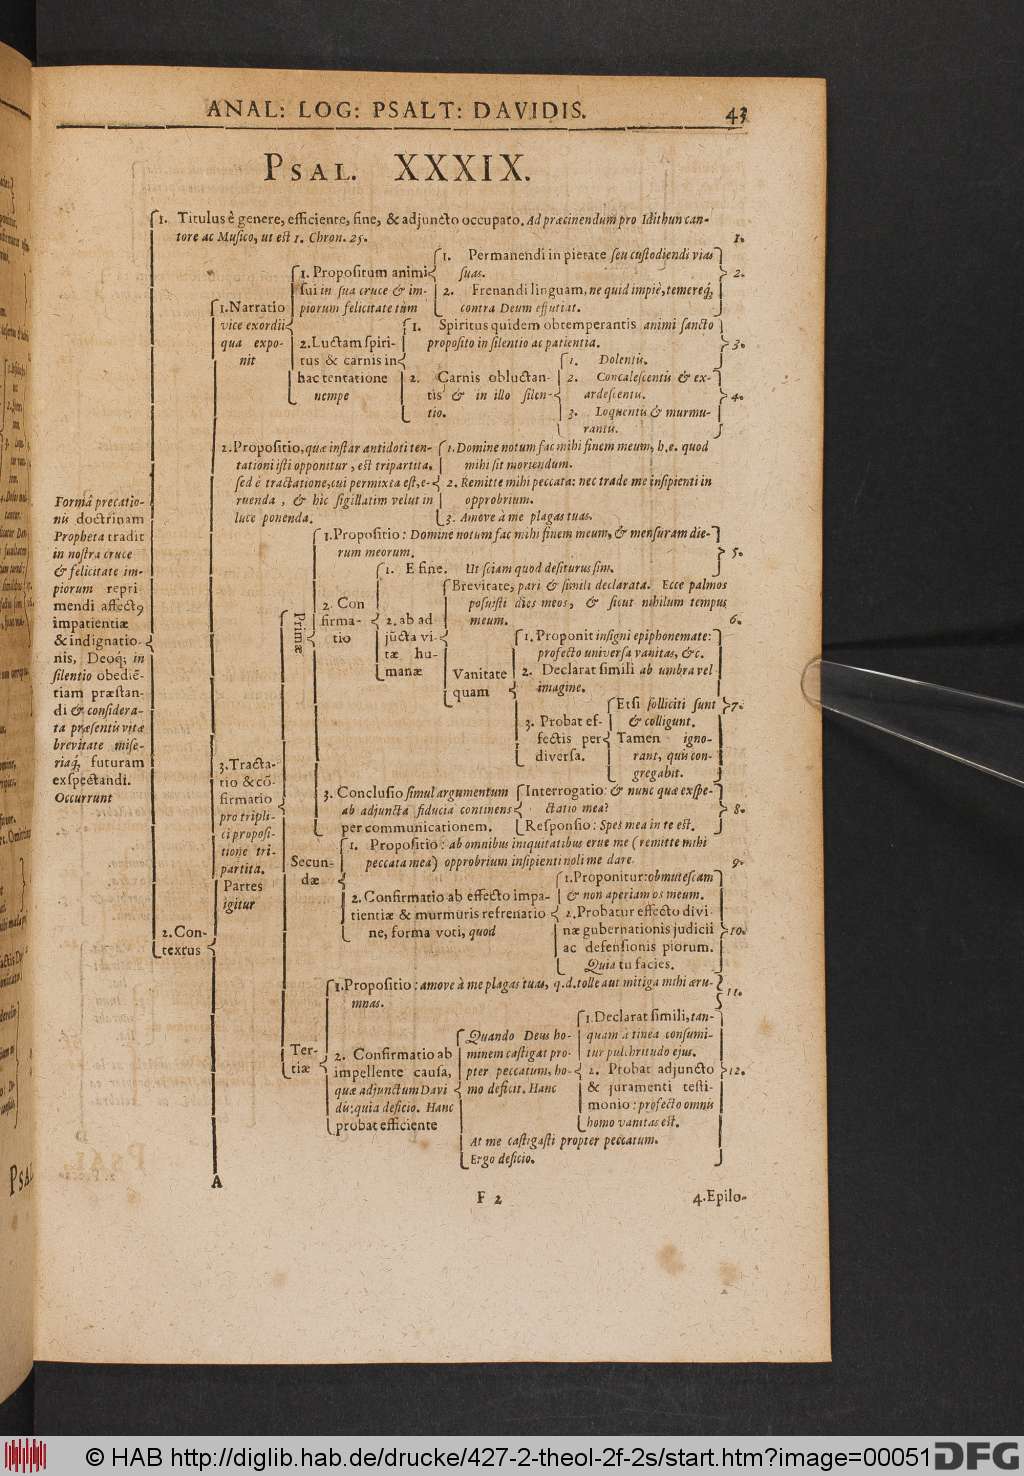 ANAL: LOG: PSALT: DAVIDIS. 43
PSAL. XXXIX.
1. Titulus è genere, efficiente, fine, & adjuncto occupato. Ad præcinendum pro Idithun can-
tore ac Musico, ut est 1. Chron. 25. 1.
Formâ precatio-
nis doctrinam
Propheta tradit
in nostra cruce
& felicitate im-
piorum repri
mendi affectꝰ
impatientiæ
& indignatio-
nis, Deoq́; in
silentio obediē-
tiam præstan-
di & considera-
ta præsentis vitæ
brevitate mise-
riaq́; futuram
exspectandi.
Occurrunt
2. Con-
textus
1. Narratio
vice exordii
qua expo-
nit
1. Propositum animi
sui in sua cruce & im-
piorum felicitate tùm
1. Permanendi in pietate seu custodiendi vias
suas. 2.
2. Frenandi linguam, ne quid impiè, temereq́;
contra Deum effutiat.
2. Luctam spiri-
tus & carnis in
hac tentatione
nempe
1. Spiritus quidem obtemperantis animi sancto
proposito in silentio ac patientia. 3.
2. Carnis obluctan-
tis & in illo silen-
tio.
1. Dolentis.
2. Concalescentis & ex-
ardescentis. 4.
3. Loquentis & murmu-
rantis.
2. Propositio, quæ instar antidoti ten-
tationi isti opponitur, est tripartita,
sed è tractatione, cui permixta est, e-
ruenda, & hic sigillatim velut in
luce ponenda.
1. Domine notum fac mihi finem meum, h.e. quod
mihi sit moriendum.
2. Remitte mihi peccata: nec trade me insipienti in
opprobrium.
3. Amove à me plagas tuas.
3. Tracta-
tio & cō-
firmatio
pro tripli-
ci proposi-
tione tri-
partita.
Partes
igitur
Primæ
1. Propositio: Domine notum fac mihi finem meum, & mensuram die-
rum meorum. 5.
2. Con
firma-
tio
1. E fine. Ut sciam quod desiturus sim.
2. ab ad
jūcta vi-
tæ hu-
manæ
Brevitate, pari & simili declarata. Ecce palmos
posuisti dies meos, & sicut nihilum tempus
meum. 6.
Vanitate
quam
1. Proponit insigni epiphonemate:
profecto universa vanitas, &c.
2. Declarat simili ab umbra vel
imagine.
3. Probat ef-
fectis per
diversa.
Etsi solliciti sunt 7.
& colligunt.
Tamen igno-
rant, quis con-
gregabit.
3. Conclusio simul argumentum
ab adjuncta fiducia continens
per communicationem.
Interrogatio: & nunc quæ exspe-
ctatio mea? 8.
Responsio: Spes mea in te est.
Secun-
dæ
1. Propositio: ab omnibus iniquitatibus erue me (remitte mihi
peccata mea) opprobrium insipienti noli me dare. 9.
2. Confirmatio ab effecto impa-
tientiæ & murmuris refrenatio
ne, forma voti, quod
1. Proponitur: obmutescam
& non aperiam os meum.
2. Probatur effecto divi-
næ gubernationis judicii 10.
ac defensionis piorum.
Quia tu facies.
Ter-
tiæ
1. Propositio: amove à me plagas tuas, q.d. tolle aut mitiga mihi æru-
mnas. 11.
2. Confirmatio ab
impellente causa,
quæ adjunctum Davi
dis: quia deficio. Hanc
probat efficiente
Quando Deus ho-
minem castigat pro-
pter peccatum, ho-
mo deficit. Hanc
1. Declarat simili, tan-
quam à tinea consumi-
tur pulchritudo ejus.
2. Probat adjuncto 12.
& juramenti testi-
monio: profecto omnis
homo vanitas est.
At me castigasti propter peccatum.
Ergo deficio.
A
F 2 4. Epilo-
© HAB http://diglib.hab.de/drucke/427-2-theol-2f-2s/start.htm?image=00051
DFG